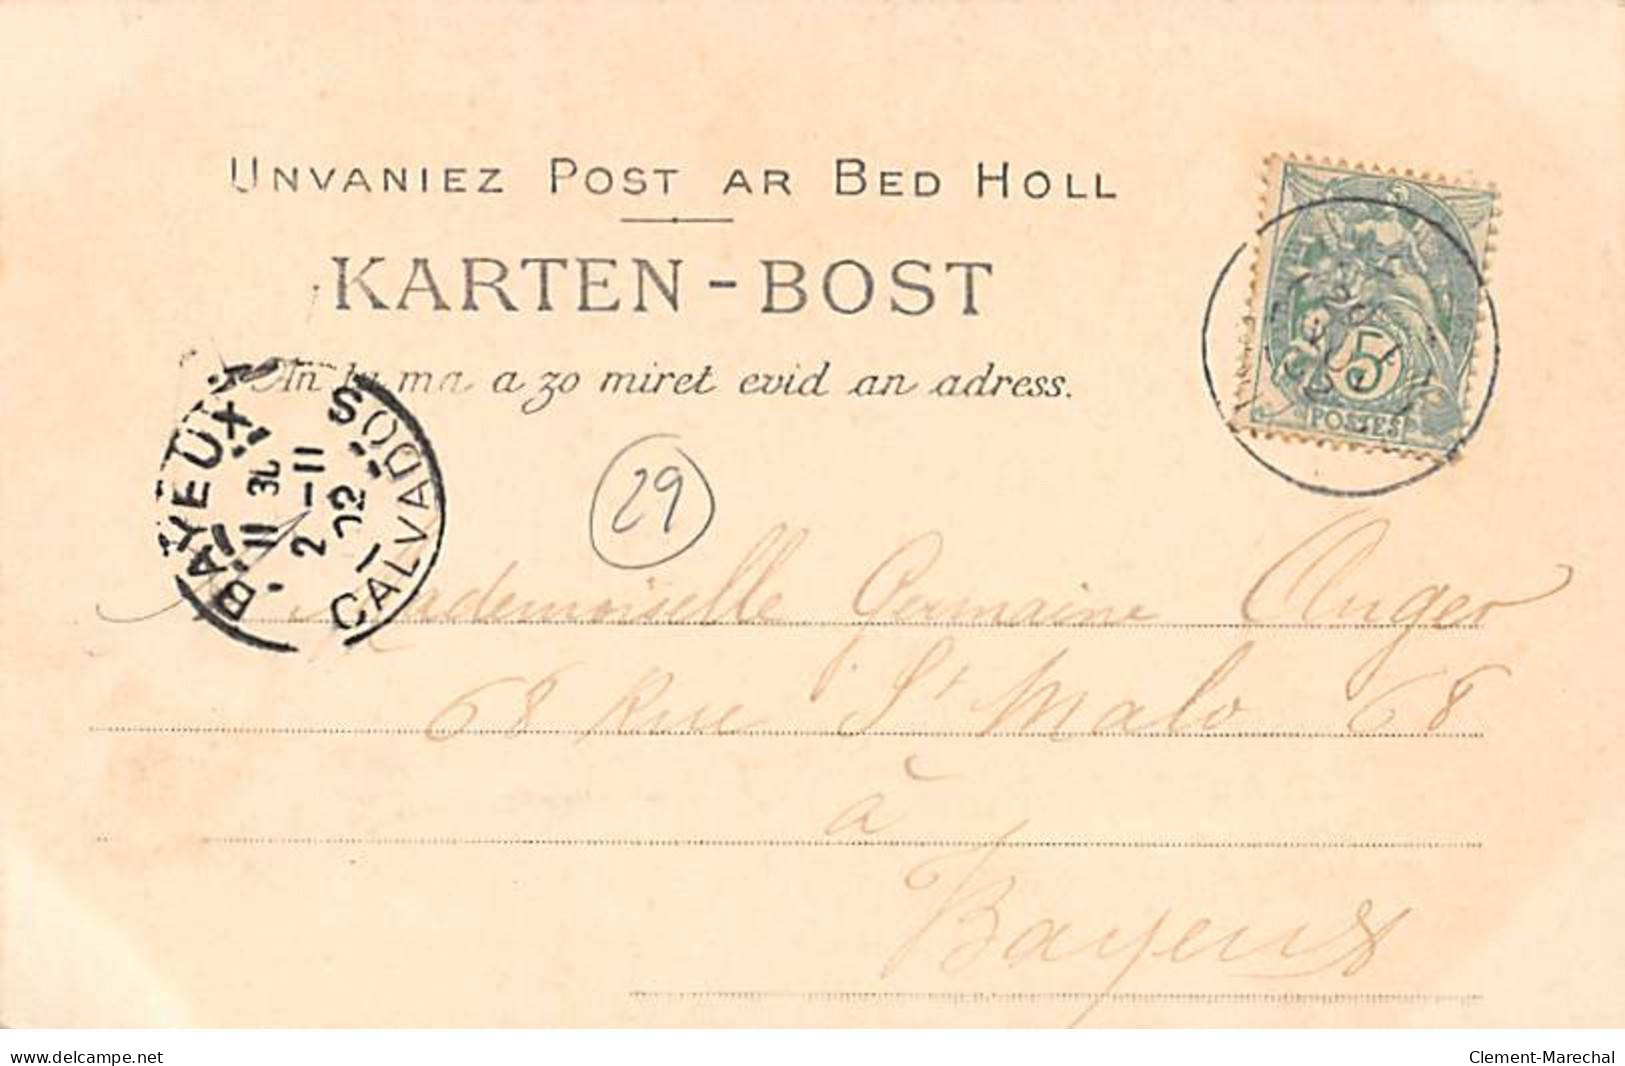 UNVANIEZ POST AR BED HOLL
KARTEN-BOST
An tu ma a zo miret evid an adress.
5
POSTES
BAYEUX
11 30
2 -11
02
CALVADOS
29
Mademoiselle Germaine Auger
68 Rue St Malo 68
à
Bayeux
www.delcampe.net
Clement-Marechal